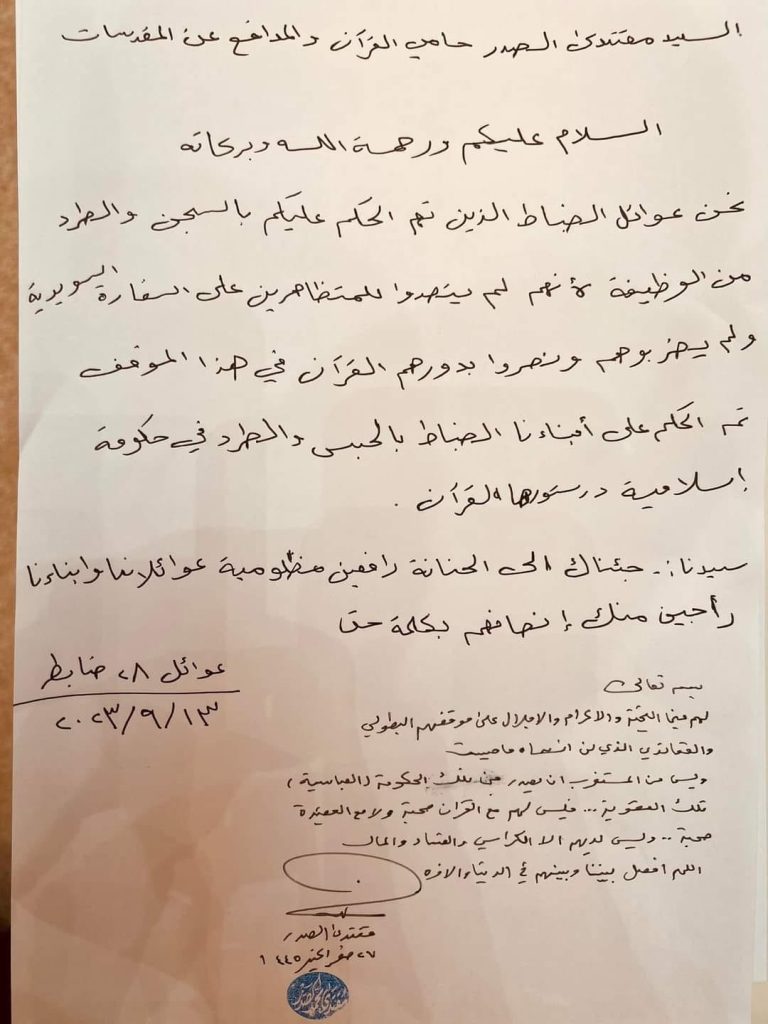 السيد مقتدى الصدر حامي القرآن والمدافع عن المقدسات
السلام عليكم ورحمة الله وبركاته
نحن عوائل الضباط الذين تم الحكم عليكم بالسجن والطرد
من الوظيفة لأنهم لم يتصدوا للمتظاهرين على السفارة السويدية
ولم يضربوهم ونصروا بدورهم القرآن في هذا الموقف
تم الحكم على أبناءنا الضباط بالحبس والطرد في حكومة
إسلامية دستورها القرآن .
سيدنا :- جئناك الى الحنانة رافعين مظلومية عوائلنا وابناءنا
راجين منك إنصافهم بكلمة حق
عوائل ٢٨ ضابط
٢٠٢٣/٩/١٣
بسمه تعالى
لهم منا التحية والاكرام والاجلال على موقفهم البطولي
والعقائدي الذي لن انساه ما حييت
وليس من المستغرب ان يصدر من تلك الحكومة (العباسية)
تلك العقوبة ... فليس لهم مع القرآن صحبة ولا مع العقيدة
صحبة .. وليس لديهم الا الكراسي والفساد والمال
اللهم افصل بيننا وبينهم في الدنيا والاخرة
مقتدى الصدر
٢٧ صفر الخير ١٤٤٥